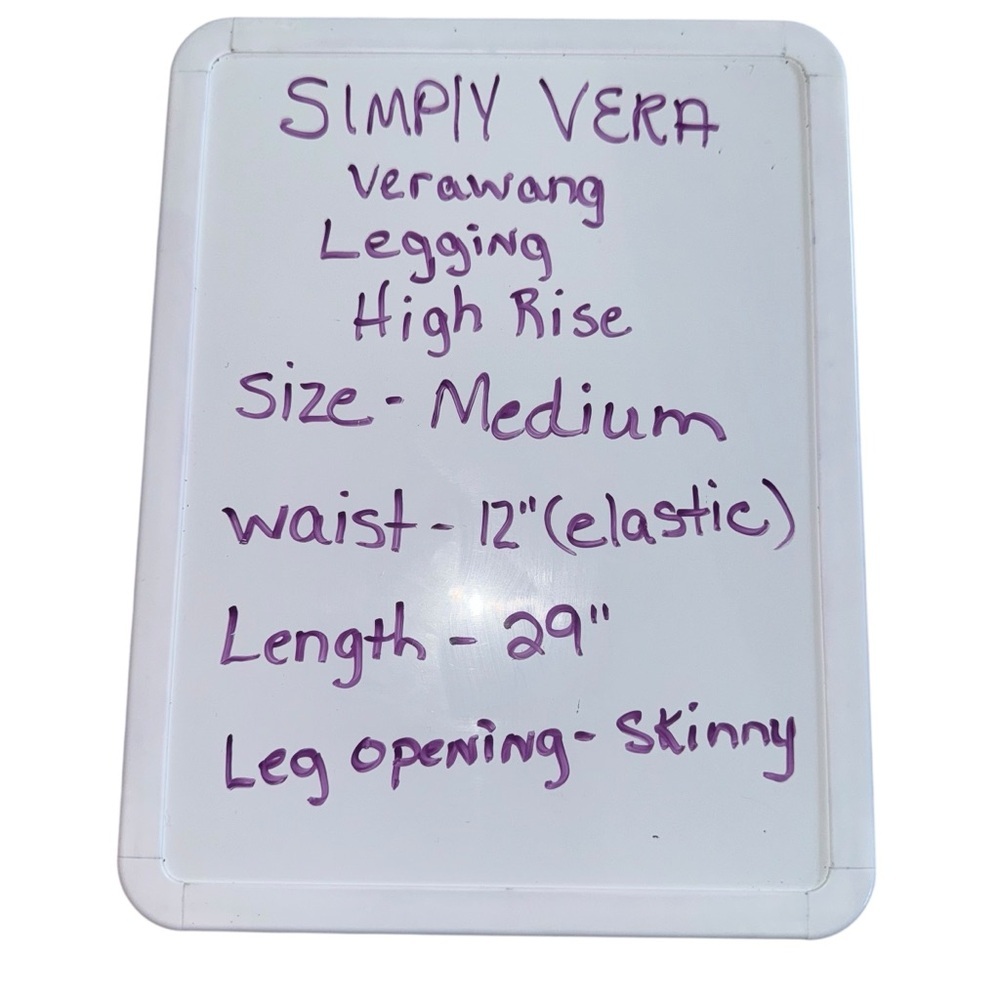 SIMPLY VERA
Verawang
Legging
High Rise
Size - Medium
waist - 12" (elastic)
Length - 29"
Leg opening - Skinny